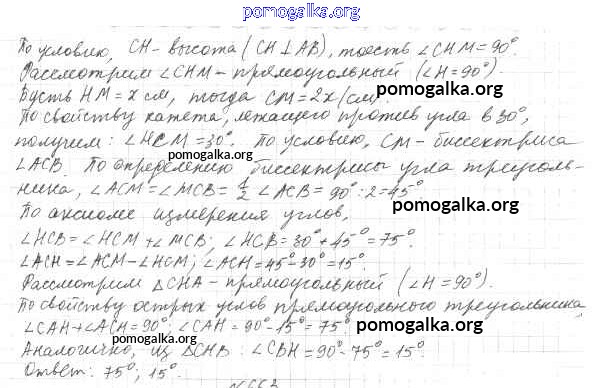 pomogalka.org
По условию, CH - высота (CH⊥AB), то есть ∠CHM = 90°.
pomogalka.org
Рассмотрим ∠CHM - прямоугольный (∠H = 90°).
Пусть HM = x см, тогда CM = 2x (см).
pomogalka.org
По свойству катета, лежащего против угла в 30°,
получим: ∠HCM = 30°. По условию, CM - биссектриса
pomogalka.org
∠ACB. По определению биссектрисы угла треуголь-
ника, ∠ACM = ∠MCB = 1/2 ∠ACB = 90° : 2 = 45°
По аксиоме измерения углов,
pomogalka.org
∠HCB = ∠HCM + ∠MCB; ∠HCB = 30° + 45° = 75°.
∠ACH = ∠ACM - ∠HCM; ∠ACH = 45° - 30° = 15°.
pomogalka.org
Рассмотрим △CHA - прямоугольный (∠H = 90°).
По свойству острых углов прямоугольного треугольника,
∠CAH + ∠ACH = 90°; ∠CAH = 90° - 15° = 75°
pomogalka.org
Аналогично, из △CHB: ∠CBH = 90° - 75° = 15°
pomogalka.org
Ответ: 75°; 15°.